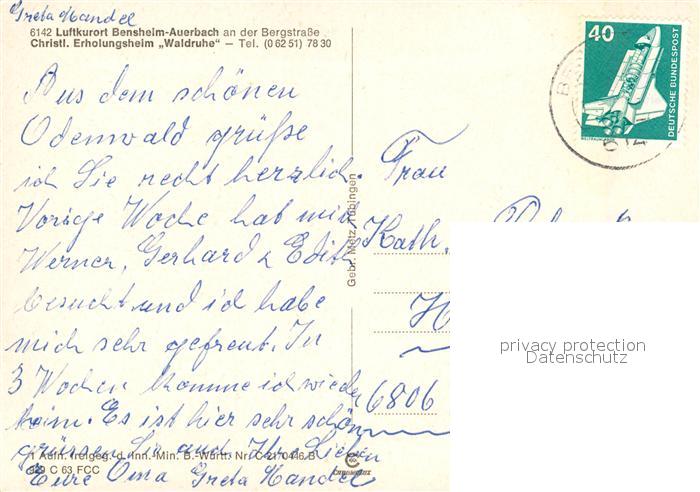 Greta Mandel
6142 Luftkurort Bensheim-Auerbach an der Bergstraße
Christl. Erholungsheim „Waldruhe" — Tel. (0 62 51) 78 30
Aus dem schönen
Odenwald grüße
ich Sie recht herzlich.
Vorige Woche hat mich
Werner, Gerhard & Edith
besucht und ich habe
mich sehr gefreut. In
3 Wochen komme ich wieder
heim. Es ist hier sehr schön
grüssen Sie auch Ihre Lieben
Eure Oma Greta Mandel
1 Aufn. freigeg. d. Inn. Min. B.-Württ. Nr. C 21-0446 B
C 63 FCC
Gebr. Metz, Tübingen
40
DEUTSCHE BUNDESPOST
WELTRAUMLABOR
614
Frau
Kath.
6806
privacy protection
Datenschutz